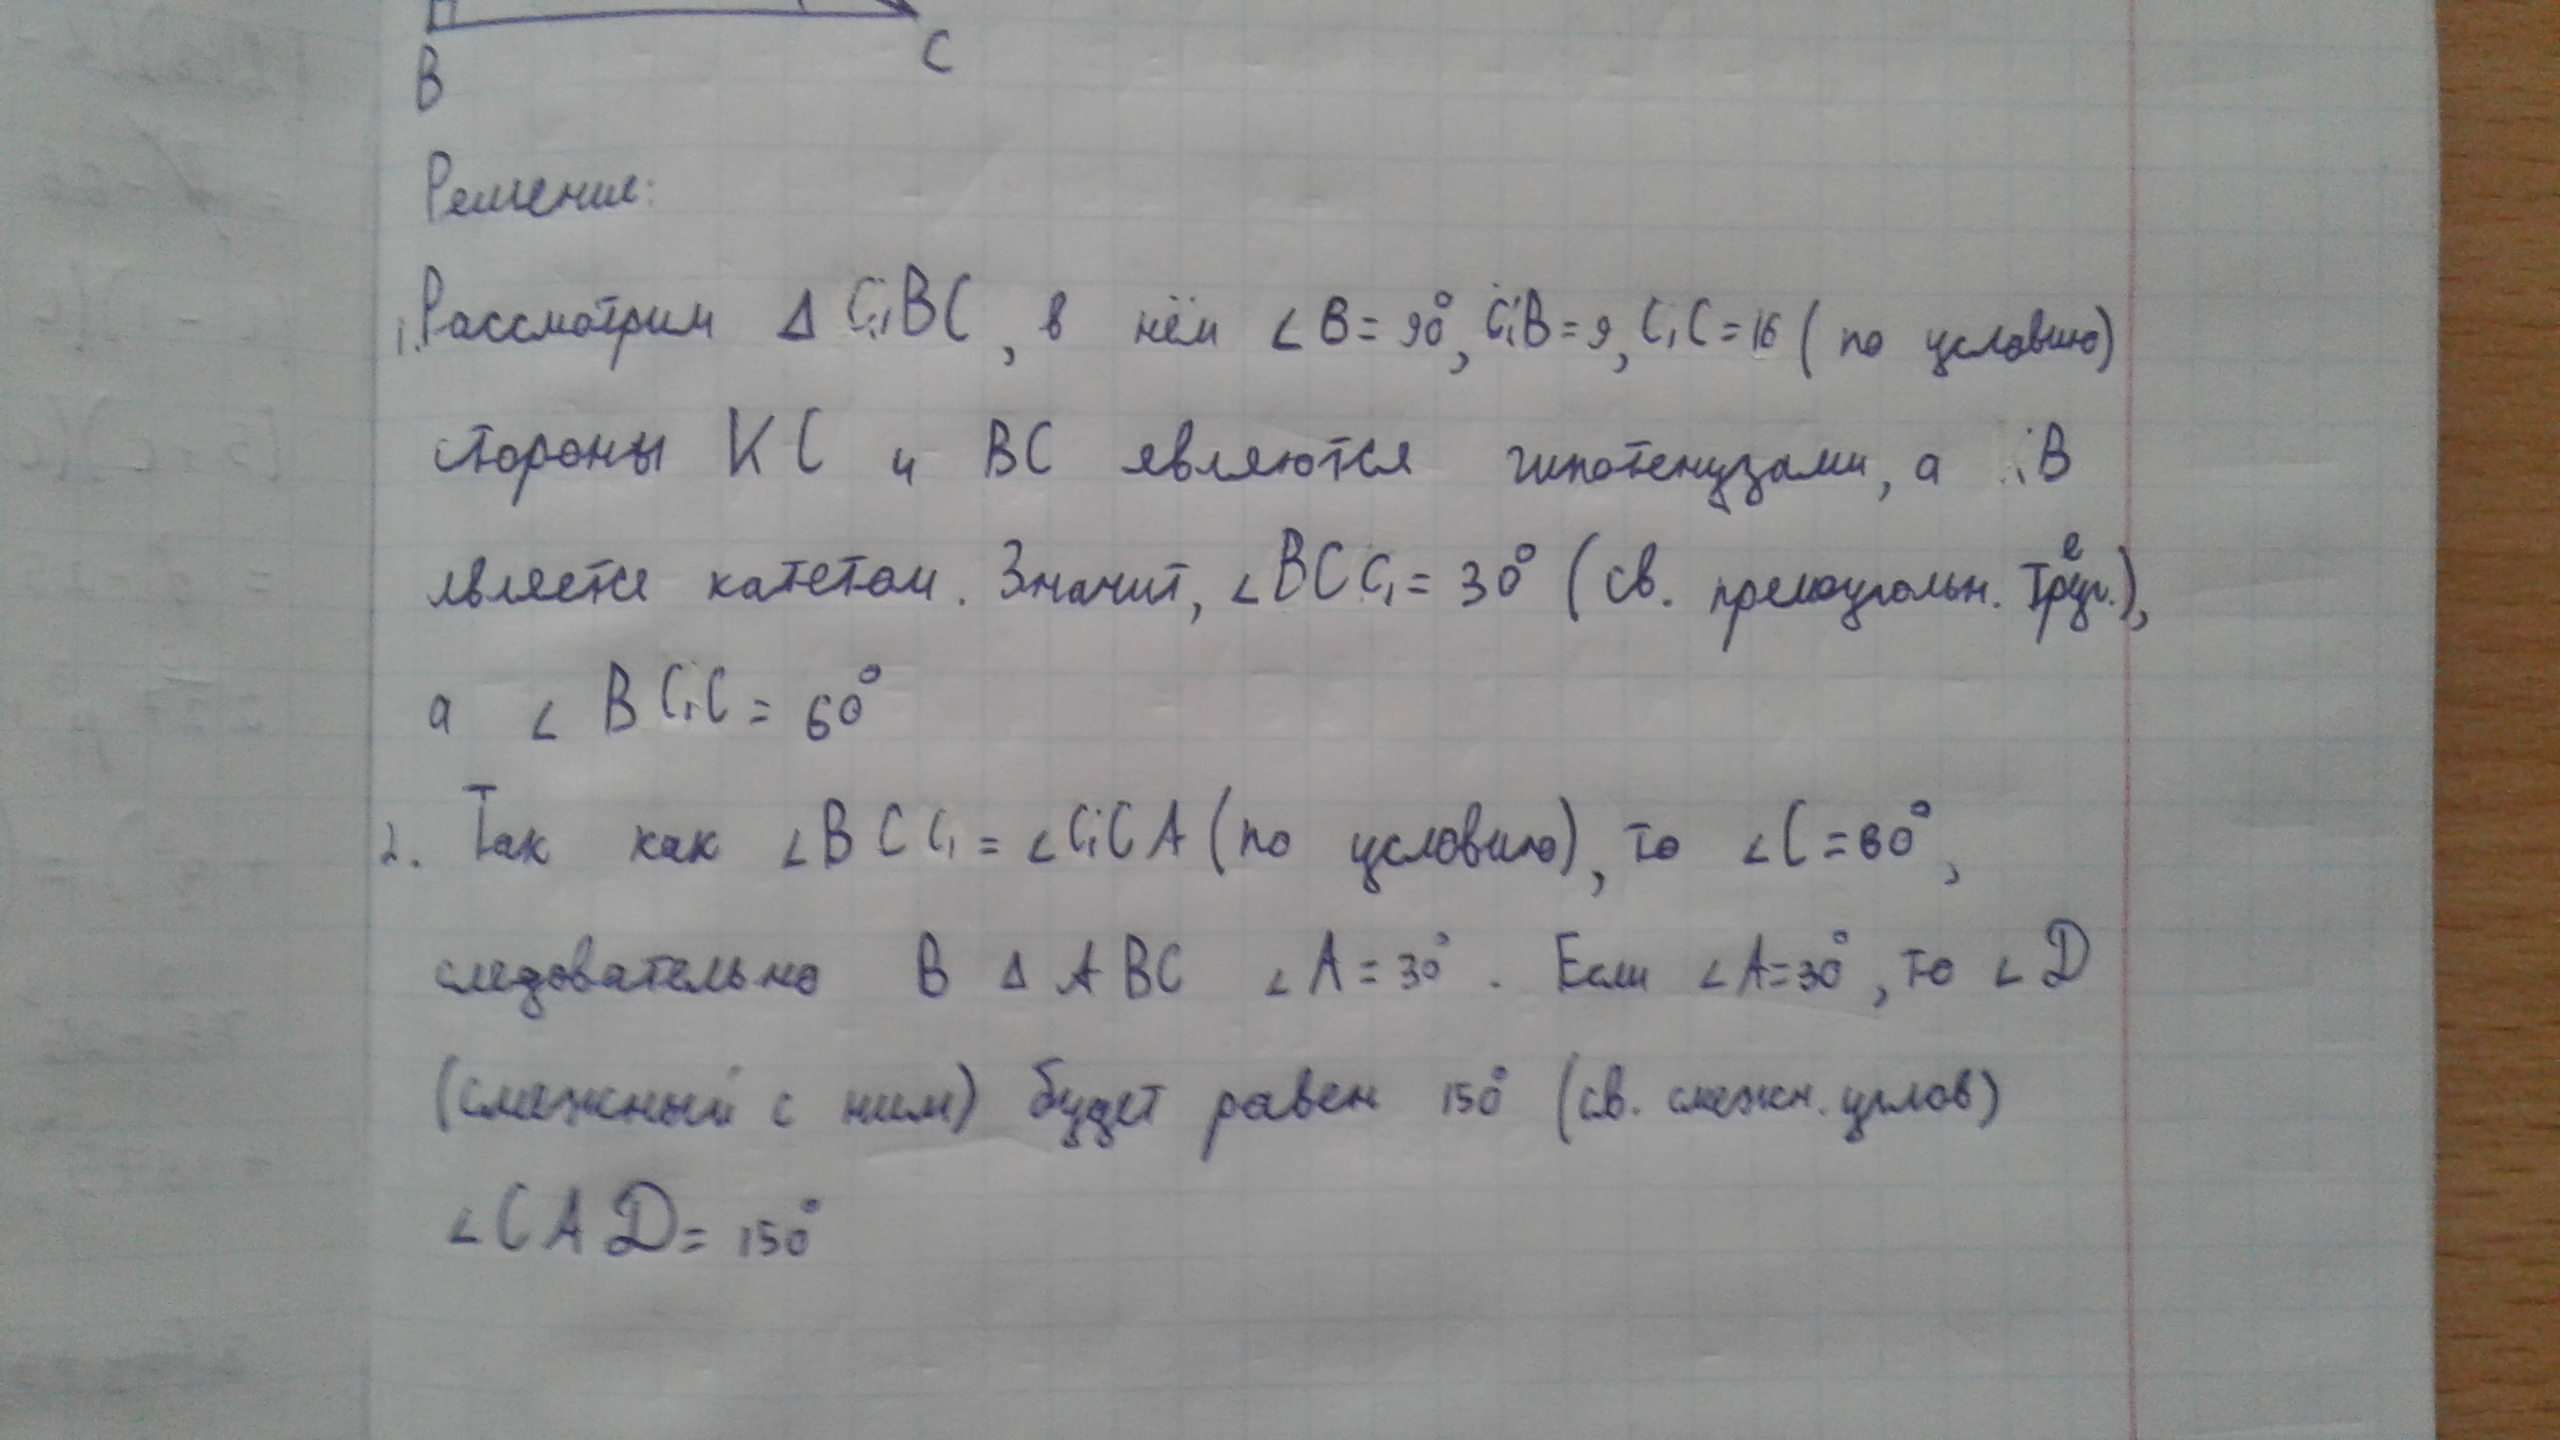 В
С
Решение:
1. Рассмотрим Δ C₁BC, в нём ∠B = 90°, C₁B = 9, C₁C = 16 ( по условию)
стороны КС и ВС являются гипотенузами, а ₁В
является катетом. Значит, ∠BCC₁ = 30° ( св. прямоугольн. треуг.),
а ∠ BC₁C = 60°
2. Так как ∠BCC₁ = ∠C₁CA (по условию), то ∠C = 60°,
следовательно В Δ ABC ∠A = 30°. Если ∠A = 30°, то ∠D
(смежный с ним) будет равен 150° (св. смежн. углов)
∠CAD = 150°